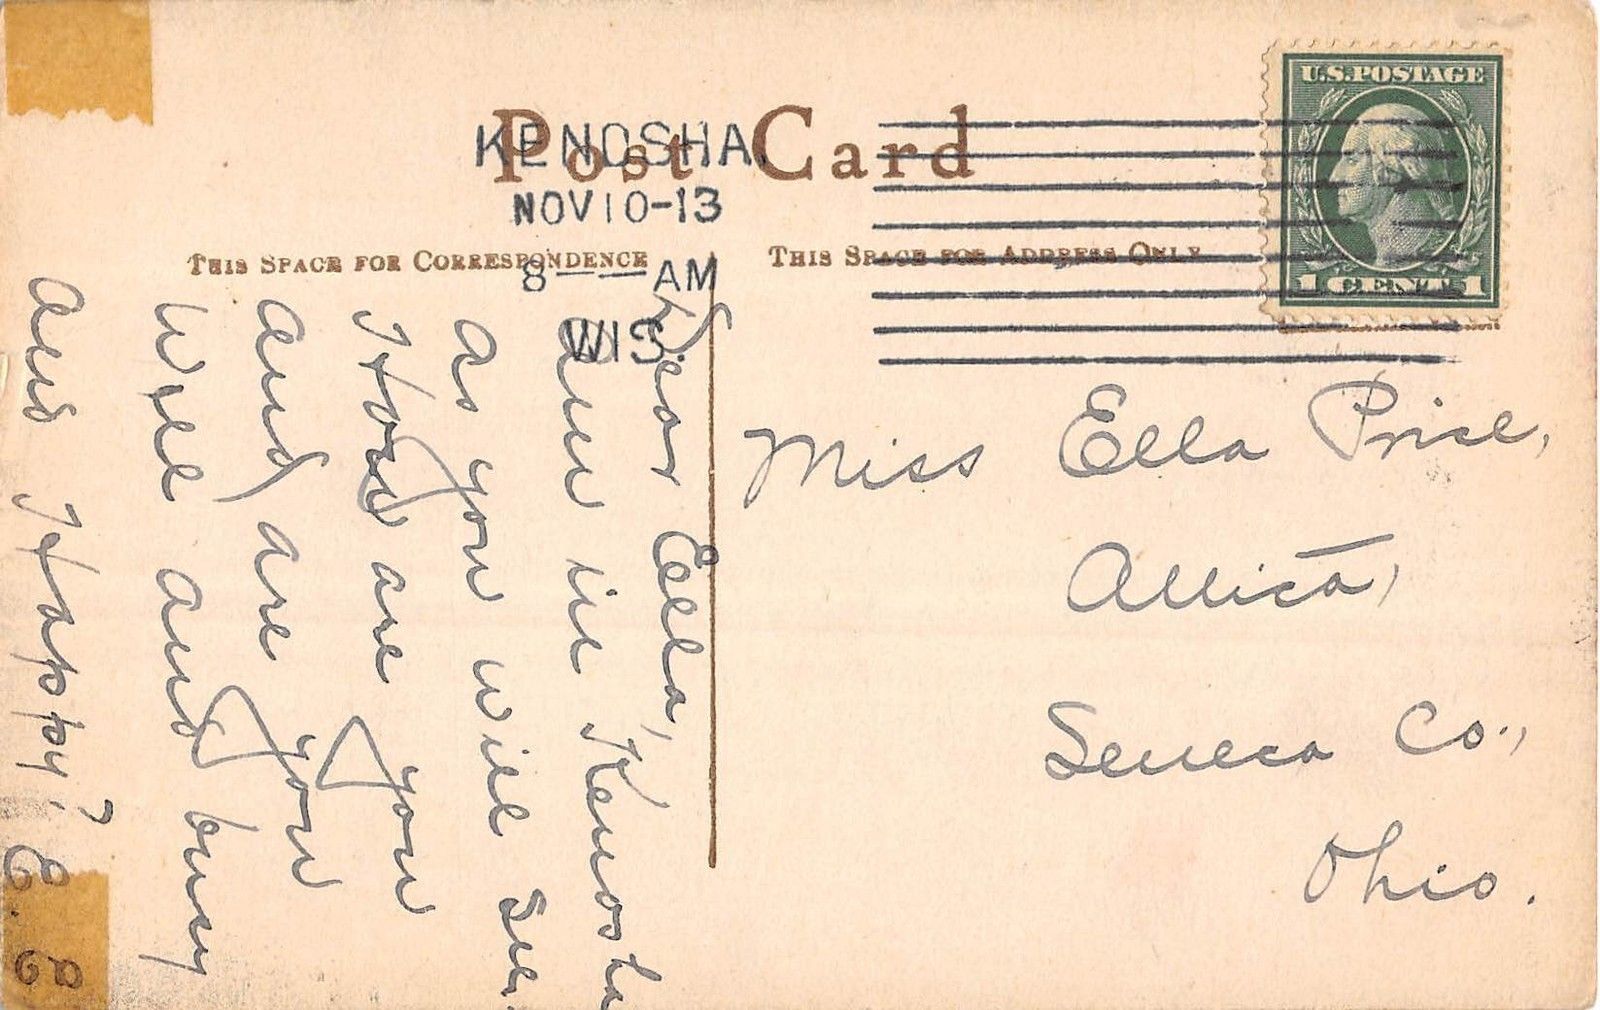 Post Card
KENOSHA.
NOV 10-13
8 — AM
WIS.
U.S. POSTAGE
1 CENT 1
THIS SPACE FOR CORRESPONDENCE
THIS SPACE FOR ADDRESS ONLY
Dear Ella,
am in Kenosha
as you will see.
How are you
and are you
well and busy
and Happy? E.
Miss Ella Price,
Attica,
Seneca Co.,
Ohio.